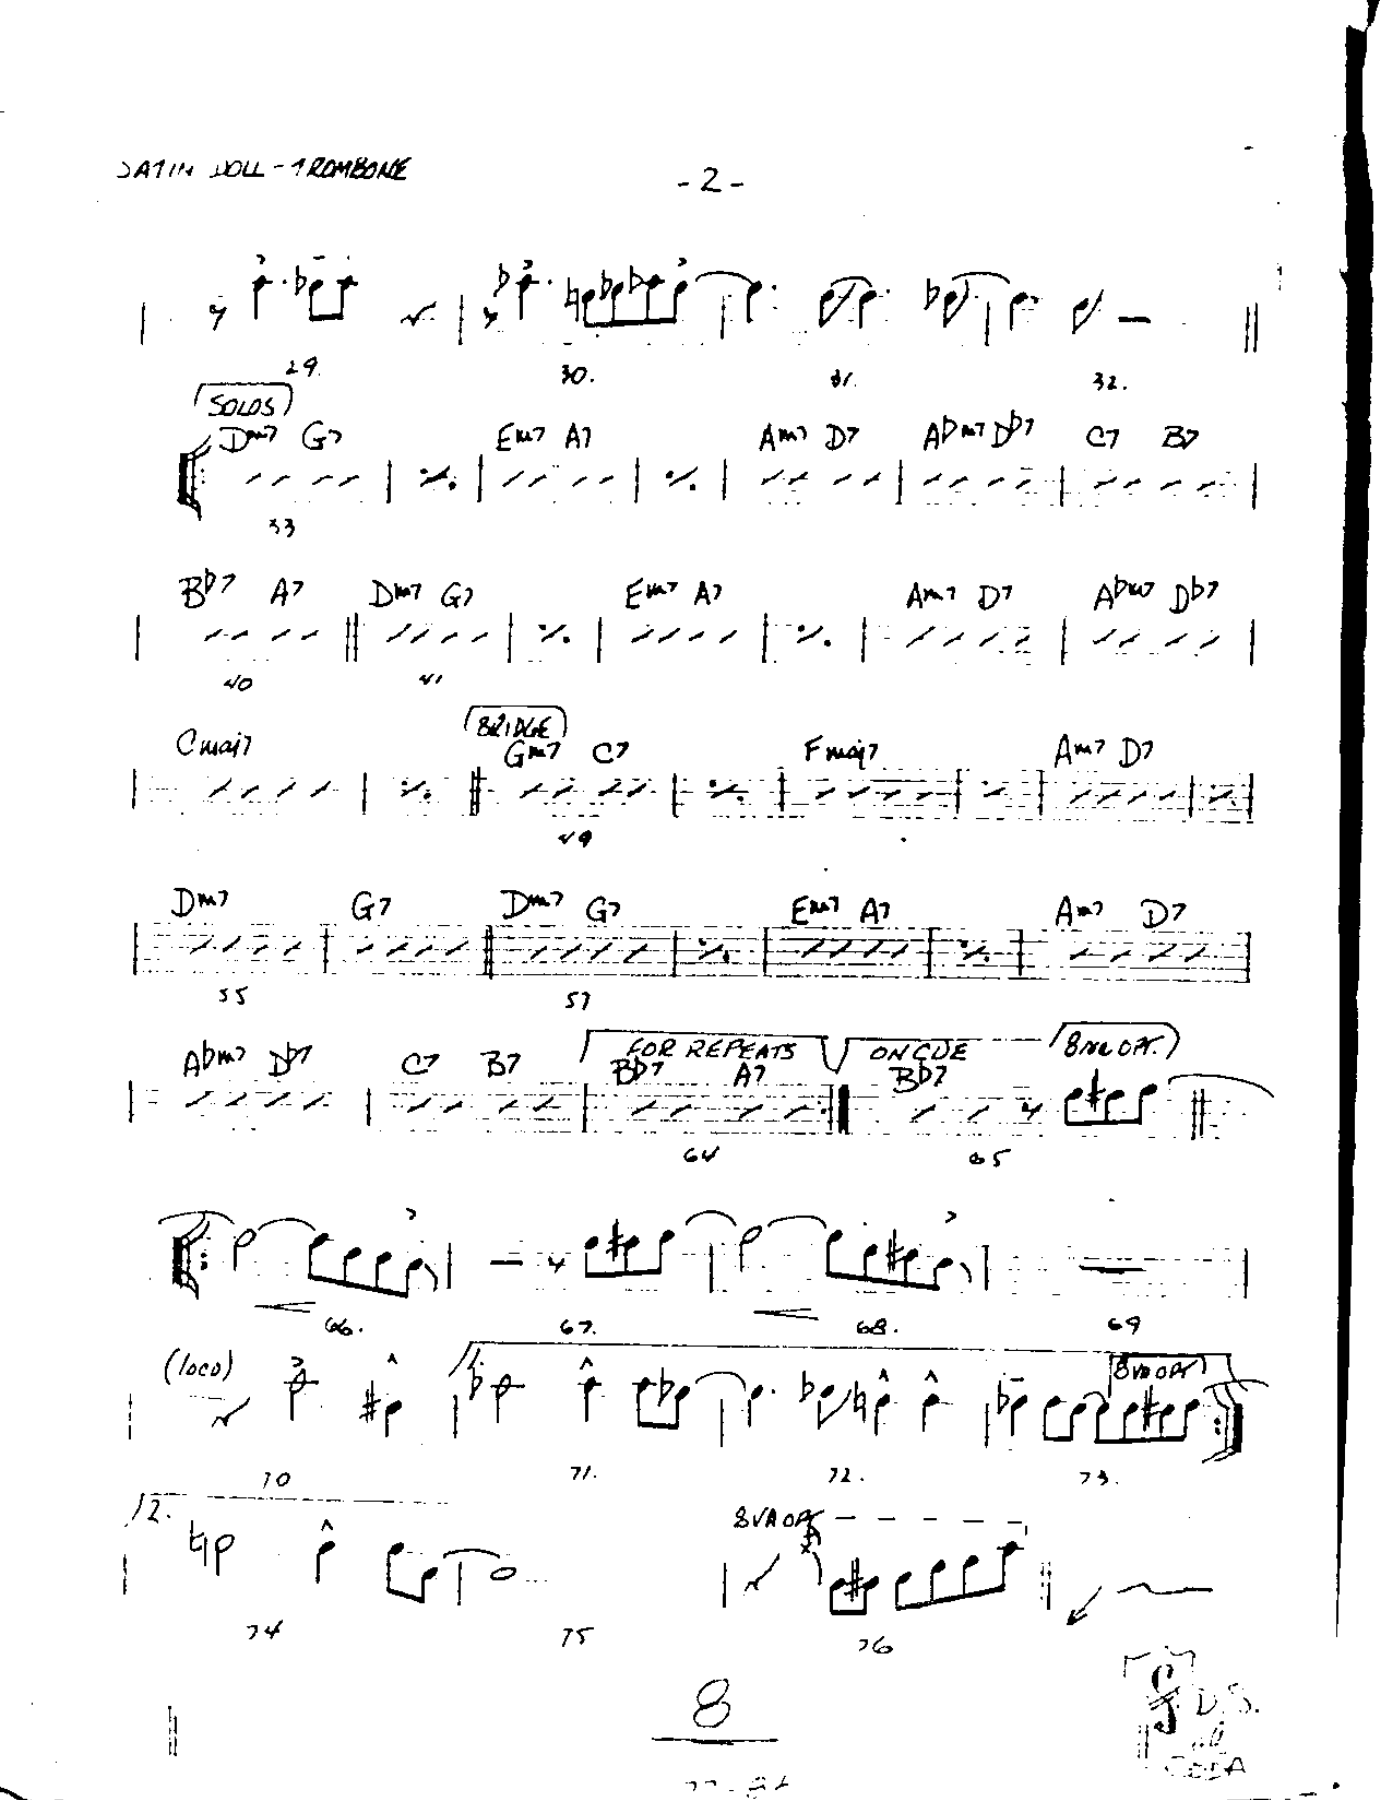 SATIN DOLL - TROMBONE
- 2 -
29. 30. 31. 32.
SOLOS
Dm7 G7 Em7 A7 Am7 D7 A♭m7 D♭7 C7 B7
33
B♭7 A7 Dm7 G7 Em7 A7 Am7 D7 A♭m7 D♭7
40 41
BRIDGE
Cmaj7 Gm7 C7 Fmaj7 Am7 D7
49
Dm7 G7 Dm7 G7 Em7 A7 Am7 D7
55 57
FOR REPEATS ON CUE 8VA OPT.
A♭m7 D♭7 C7 B7 B♭7 A7 B♭7
64 65
66. 67. 68. 69
(loco) 1. 8VA OPT
70 71. 72. 73.
2. 8VA OPT
74 75 76
8
D.S.
al
CODA
77-84